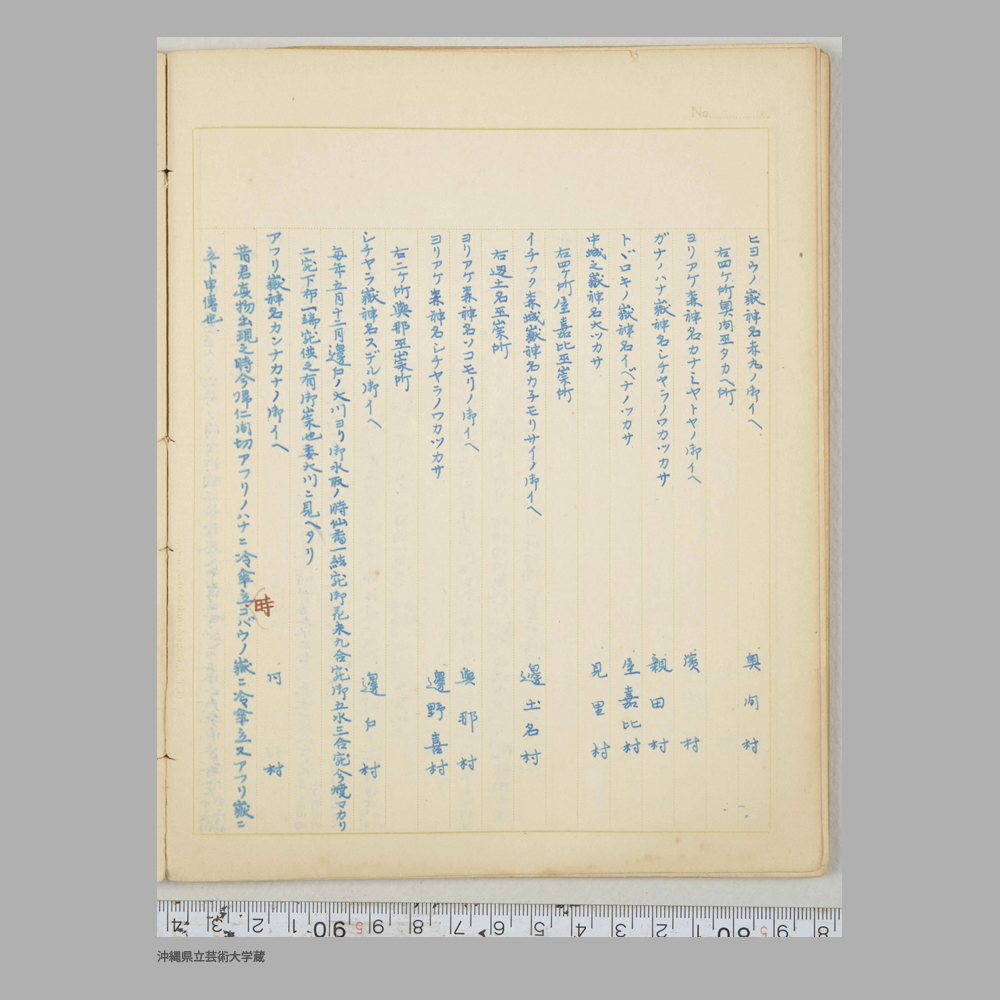 No.
ヒヨウノ嶽神名赤丸ノ御イヘ 奥間村
右四ケ所奥間巫タカヘ所
ヨリアケ森神名カナミヤトヤノ御イヘ 濱村
ガナノハナ嶽神名シチヤラノワカツカサ 親田村
トヾロキノ嶽神名イベナノツカサ 屋嘉比村
中城之嶽神名大ツカサ 見里村
右四ケ所屋嘉比巫崇所
イチフク森城嶽神名カ子モリサイノ御イヘ 邊土名村
右辺土名巫崇所
ヨリアケ森神名ソコモリノ御イヘ 與那村
ヨリアケ森神名シチヤラノワカツカサ 邊野喜村
右二ケ所與那巫崇所
シチヤラ嶽神名スデル御イヘ 邊戸村
毎年五月十二月邊戸ノ大川ヨリ御水取ノ時仙香一結完御花米九合完御五水三合完今焼マカリ
二完下布一端完供之有御崇也委大川ニ見ヘタリ
アフリ嶽神名カンナカナノ御イヘ 同村
昔君真物出現之時今帰仁間切アフリノハナニ冷傘立時コバウノ嶽ニ冷傘立又アフリ嶽ニ
立ト申傳也
4 3 2 1 90 9 8 7 6 5 4 3 2 1 80 8
沖縄県立芸術大学蔵